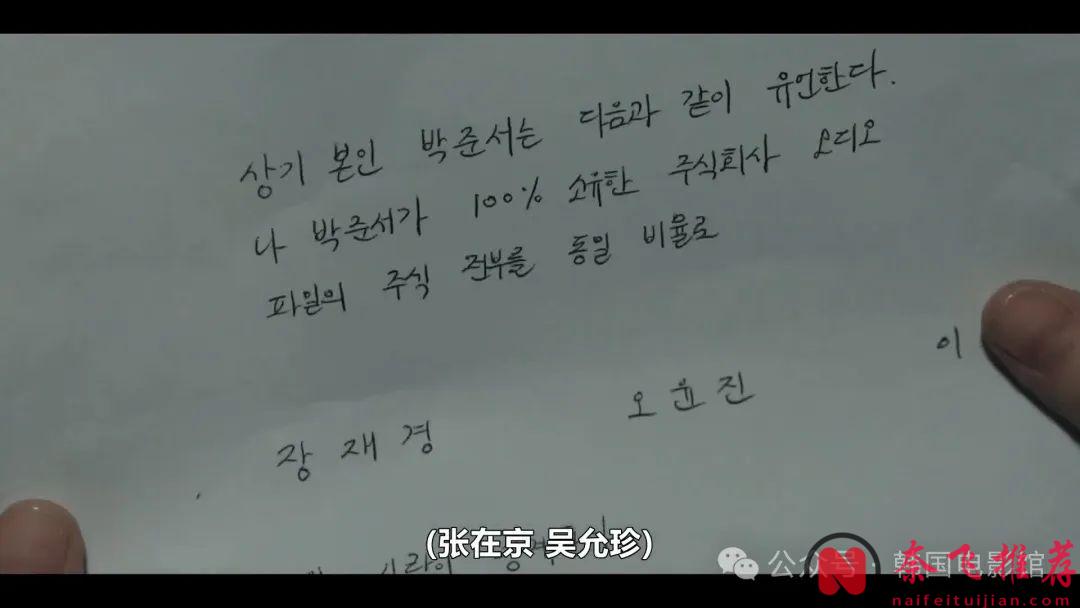 상기 본인 박준서는 다음과 같이 유언한다.
나 박준서가 100% 소유한 주식회사 오디오
파일의 주식 전부를 동일 비율로
이
장재경 오윤진
(张在京 吴允珍)
公众号·韩国电影馆
N 奈飞推荐
naifeituijian.com